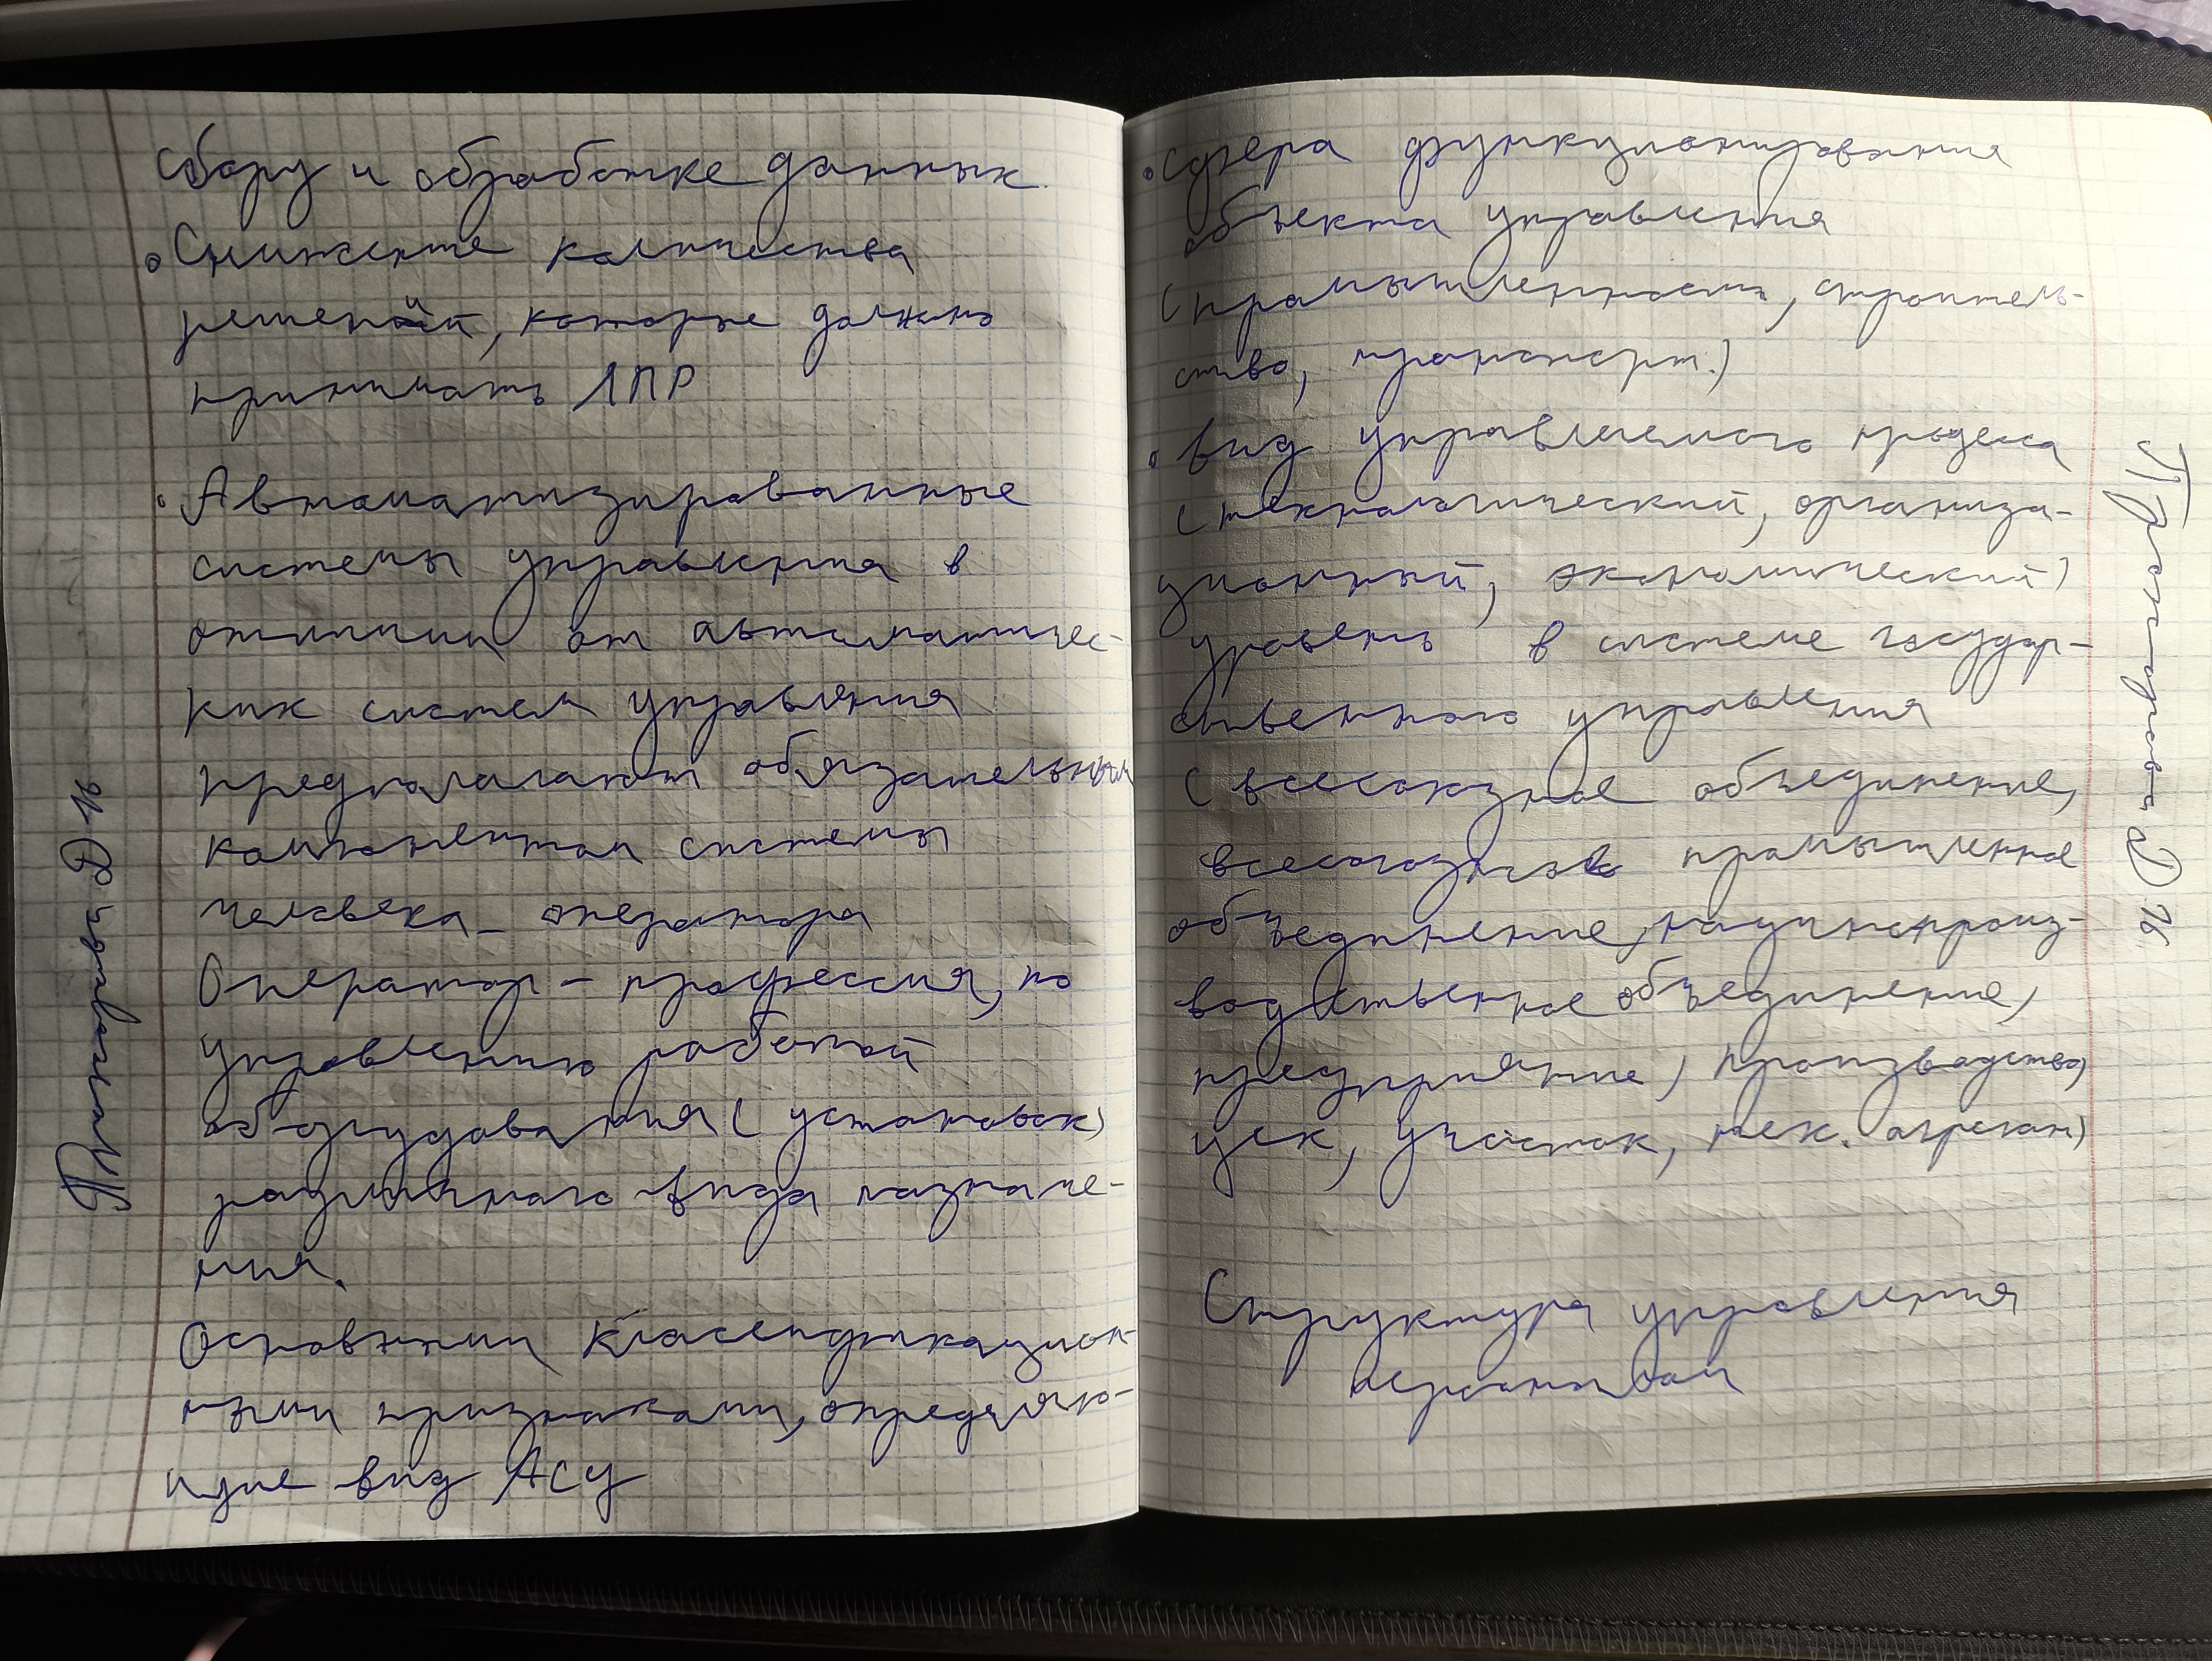 сбору и обработке данных.
Снижение количества
решений, которые должно
принимать ЛПР
Автоматизированные
системы управления в
отличии от автоматичес-
ких систем управления
предполагают обязательным
компонентом системы
человека - оператора
Оператор - профессия, по
управлению работой
оборудования (установок)
различного вида назначе-
ния.
Основними классификацион-
ными признаками, определяю-
щие вид АСУ
сфера функционирования
объекта управления
(промышленность, строитель-
ство, транспорт.)
вид управляемого процесса
(технологический, организа-
ционный, экономический)
уровень в системе государ-
ственного управления
(всесоюзное объединение,
всесоюзное промышленное
объединение, научнопроиз-
водственное объединение,
предприятие, производство,
цех, участок, тех. агрегат)
Структура управления
персоналом